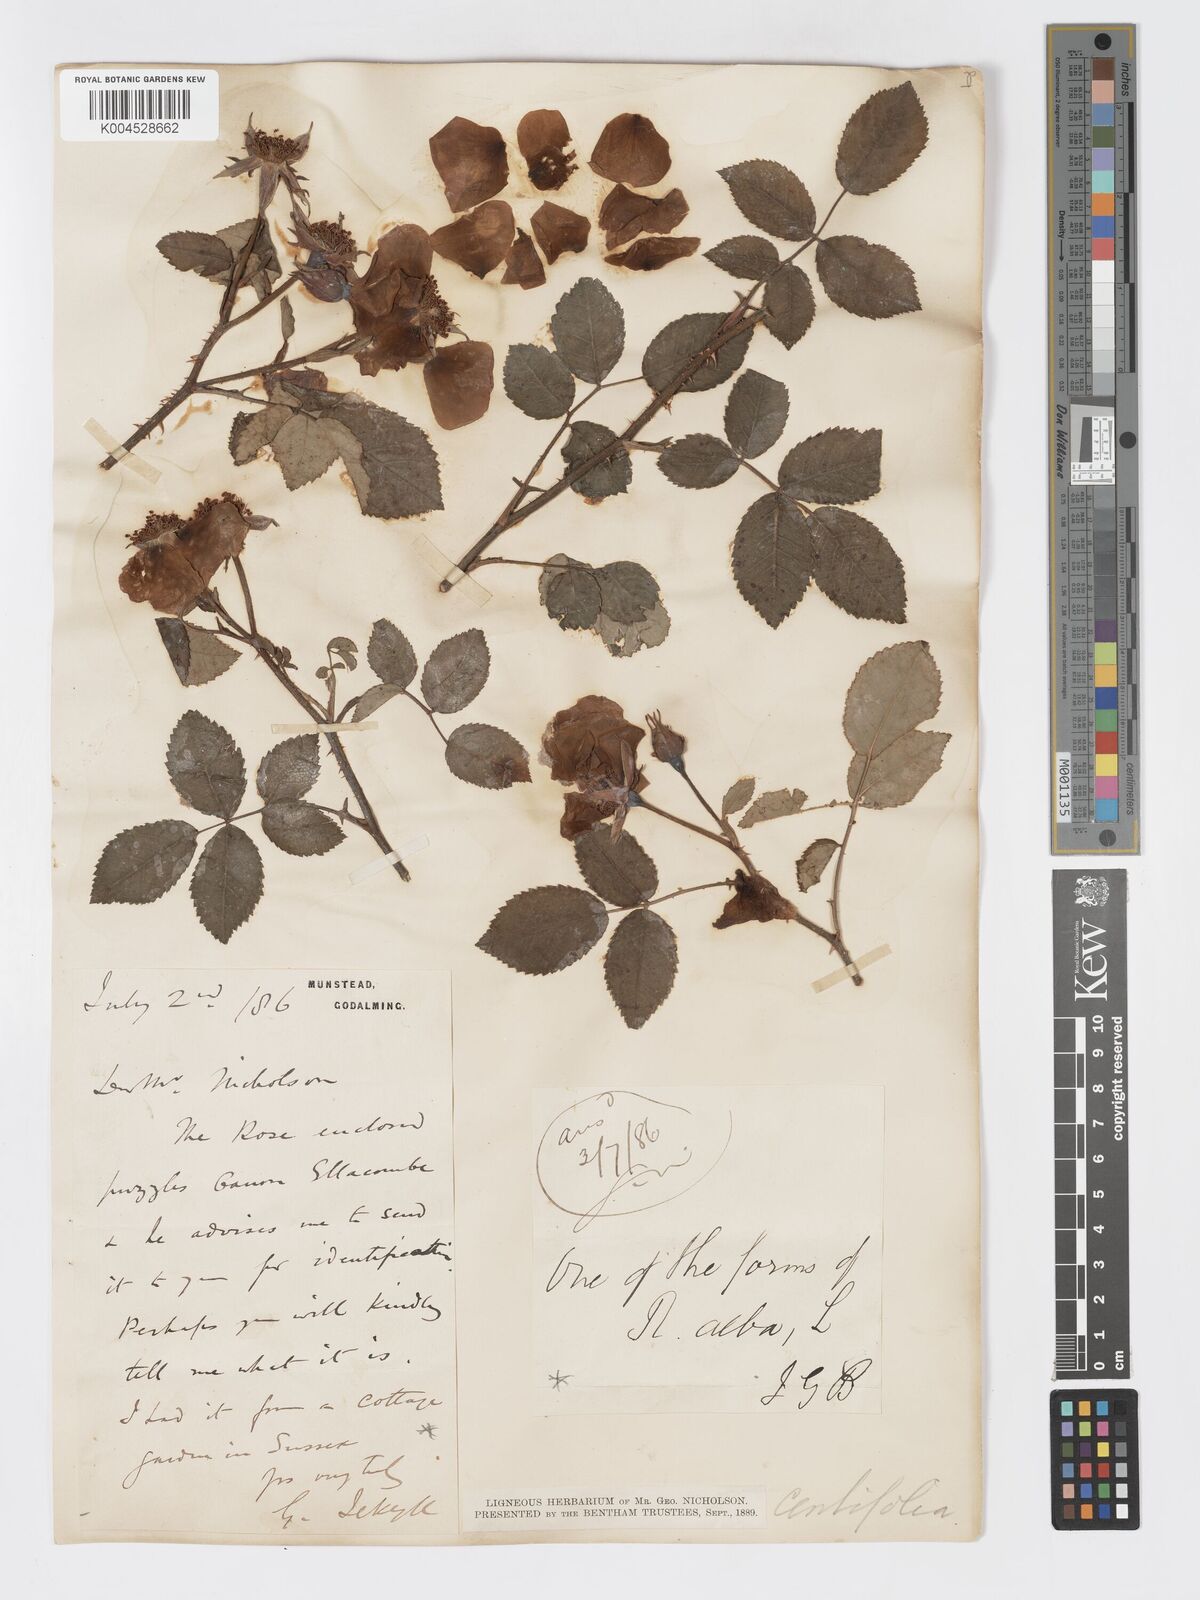 ROYAL BOTANIC GARDENS KEW
K004528662
July 2nd /86
MUNSTEAD,
GODALMING.
Dear Mr. Nicholson
The Rose enclosed
puzzles Canon Ellacombe
& he advises me to send
it to you for identification.
Perhaps you will kindly
tell me what it is.
I had it from a cottage
garden in Sussex
yrs very truly
G. Jekyll
ansd
3/7/86
One of the forms of
R. alba, L
J G B
LIGNEOUS HERBARIUM OF MR. GEO. NICHOLSON.
PRESENTED BY THE BENTHAM TRUSTEES, SEPT., 1889.
centifolia
Density
Don Williams
M001135
centimeters
Kew
Royal Botanic Gardens
0 1 2 3 4 5 6 7 8 9 10
cm
copyright reserved